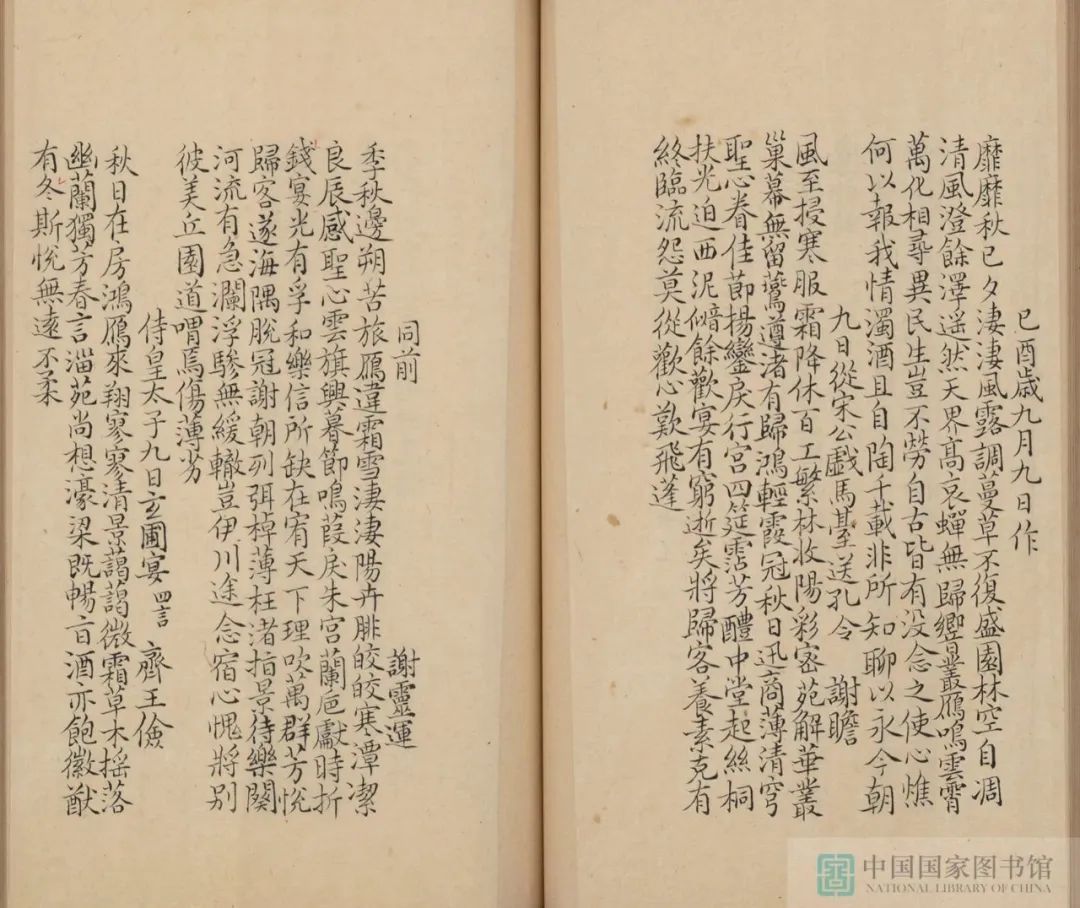 己酉歲九月九日作
靡靡秋已夕淒淒風露調蔓草不復盛園林空自凋
清風澄餘澤遥然天界高哀蟬無歸響叢鴈鳴雲霄
萬化相尋異民生豈不勞自古皆有没念之使心憔
何以報我情濁酒且自陶千載非所知聊以永今朝
九日從宋公戲馬臺送孔令 謝瞻
風至授寒服霜降休百工繁林收陽彩密苑解華叢
巢幕無留鷰遵渚有歸鴻輕霞冠秋日迅商薄清穹
聖心眷佳節揚鑾戾行宮四筵霑芳醴中堂起絲桐
扶光迫西汜餘歡宴有窮逝矣將歸客養素克有
終臨流怨莫從歡心歎飛蓬
同前 謝靈運
季秋邊朔苦旅鴈違霜雪淒淒陽卉腓皎皎寒潭潔
良辰感聖心雲旗興暮節鳴葭戾朱宮蘭卮獻時折
錢宴光有孚和樂信所缺在宥天下理吹萬群芳悅
歸客遂海隅脫冠謝朝列弭棹薄枉渚指景待樂闋
河流有急瀾浮驂無緩轍豈伊川途念宿心愧將别
彼美丘園道喟焉傷薄劣
侍皇太子九日玄圃宴 四言 齊王儉
秋日在房鴻鴈來翔寥寥清景藹藹微霜草木摇落
幽蘭獨芳眷言淄苑尚想濠梁既暢旨酒亦飽徽猷
有冬斯悅無遠不柔
中国国家图书馆
NATIONAL LIBRARY OF CHINA